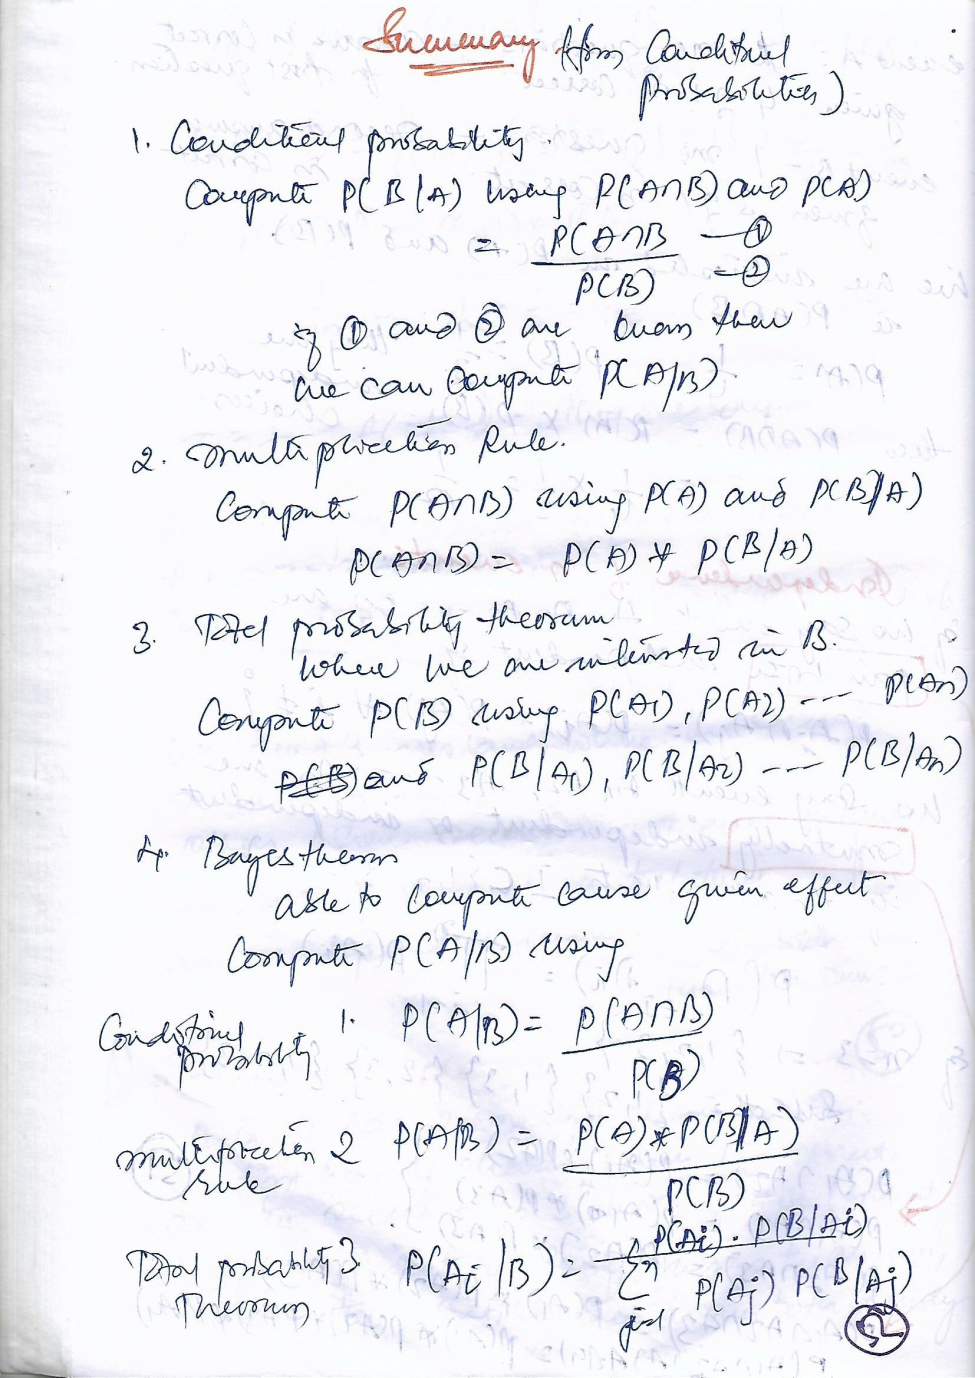 Summary (from Conditional
Probabilities)
1. Conditional probability.
Compute P(B/A) using P(A∩B) and P(A)
= P(A∩B — ①
P(B) — ②
if ① and ② are known then
we can compute P(A/B).
2. multiplication Rule.
Compute P(A∩B) using P(A) and P(B/A)
P(A∩B) = P(A) * P(B/A)
3. Total probability theorem
where we are intersted in B.
Compute P(B) using P(A1), P(A2) --- P(An)
and P(B/A1), P(B/A2) --- P(B/An)
4. Bayes theorem
able to compute cause given effect
Compute P(A/B) using
Conditional probability 1. P(A/B) = P(A∩B)
P(B)
multiplication rule 2 P(A/B) = P(A)*P(B/A)
P(B)
Total probability Theorem 3 P(Ai/B) = P(Ai) . P(B/Ai)
∑ n j=1 P(Aj) P(B/Aj)